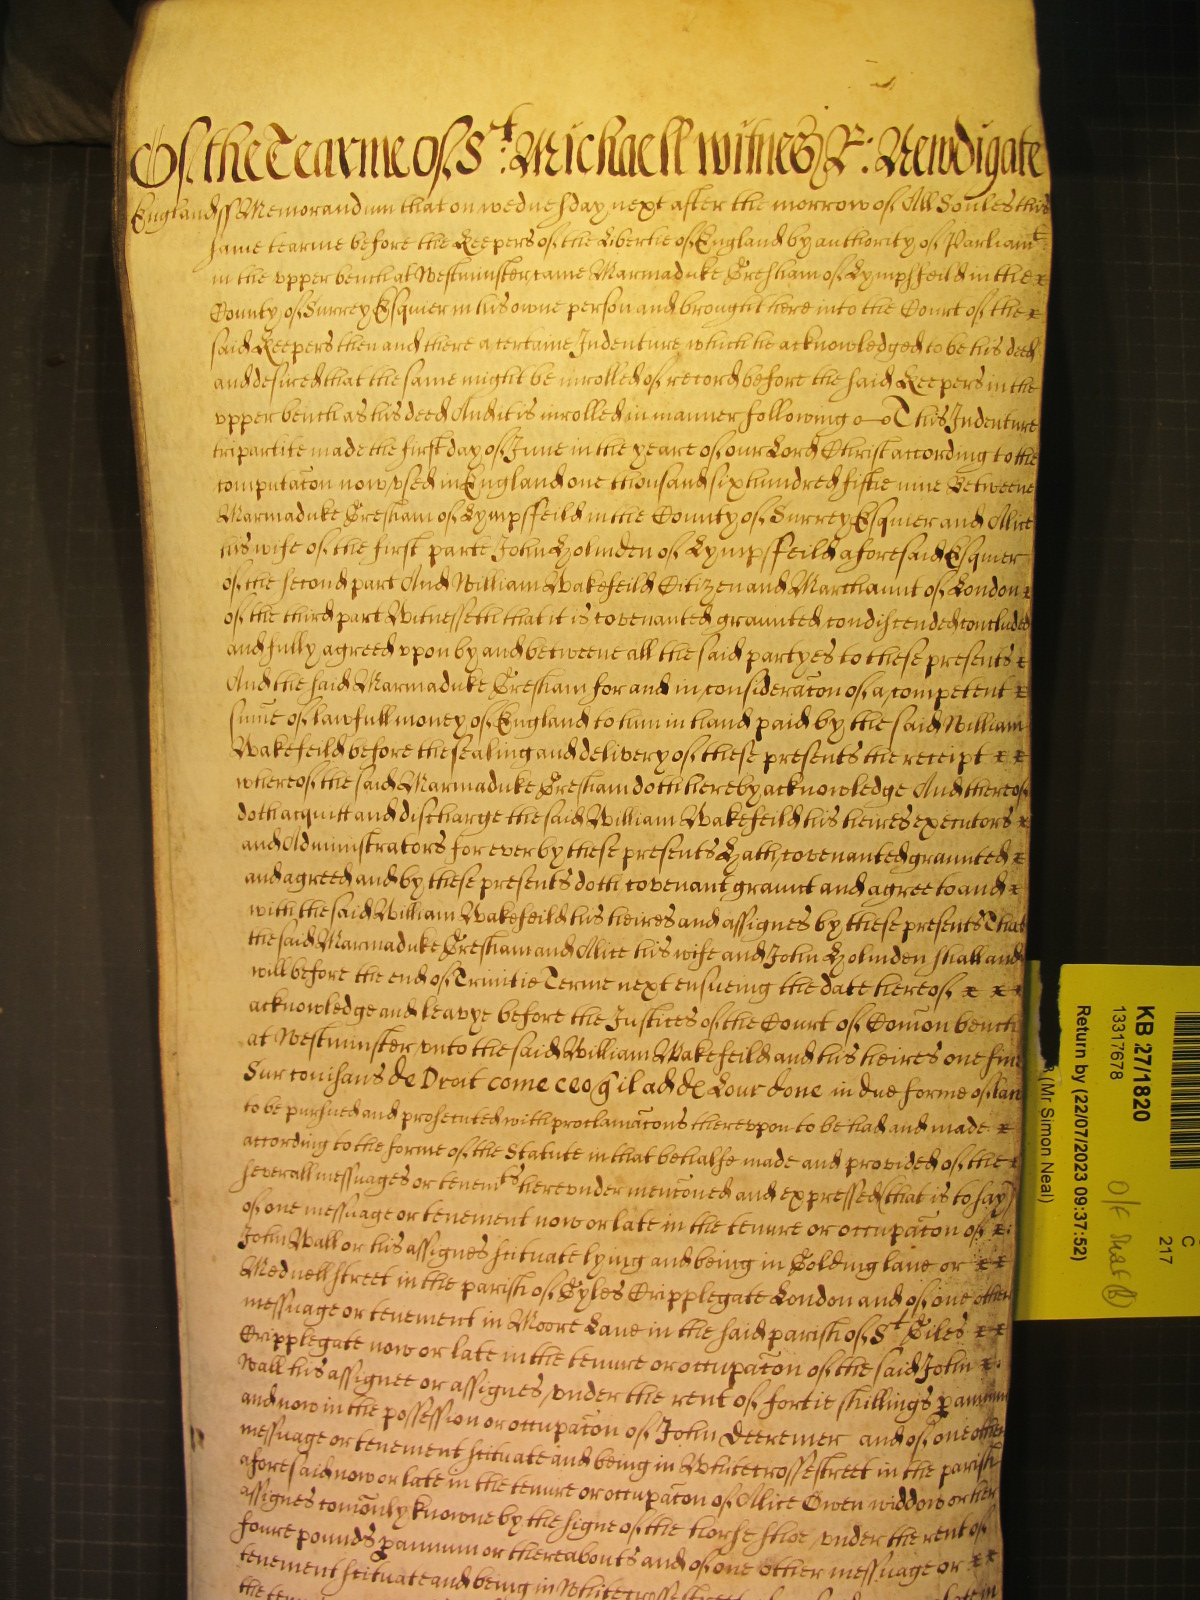 Of the Tearme of St: Michaell witnes R: Newdigate
England ss Memorandum that on wednesday next after the morrow of All Soules this
same tearme before the Keepers of the Libertie of England by authority of Parliamt
in the vpper bench at Westminster came Marmaduke Gresham of Lympsfeild in the x
County of Surrey Esquier in his owne person and brought here into the Court of the x
said Keepers then and there a certaine Indenture which he acknowledged to be his deed
and desired that the same might be inrolled of record before the said Keepers in the
vpper bench as his deed And it is inrolled in manner following This Indenture
tripartite made the first day of June in the yeare of our Lord Christ according to the
computacon now vsed in England one thousand six hundred fiftie nine Betweene
Marmaduke Gresham of Lympsfeild in the County of Surrey Esquier and Alice
his wife of the first parte John Holmden of Lympsfeild aforesaid Esquier
of the second part And William Wakefeild Citizen and Marchaunt of London x
of the third part Witnesseth that it is covenanted graunted condiscended concluded
and fully agreed vpon by and betweene all the said partyes to these presents x
And the said Marmaduke Gresham for and in consideracon of a competent x
sume of lawfull money of England to him in hand paid by the said William
Wakefeild before the sealing and delivery of these presents the receipt x x
whereof the said Marmaduke Gresham doth hereby acknowledge And thereof
doth acquitt and discharge the said William Wakefeild his heires executors x
and Administrators for ever by these presents Hath covenanted graunted x
and agreed and by these presents doth covenant graunt and agree to and x
with the said William Wakefeild his heires and assignes by these presents That
the said Marmaduke Gresham and Alice his wife and John Holmden shall and
will before the end of Trinitie Terme next ensueing the date hereof x x x
acknowledge and leavye before the Justices of the Court of Comon bench
at Westminster vnto the said William Wakefeild and his heires one fine
Sur conisans de Droit come ceo q il ad de Lour done in due forme of law
to be pursued and prosecuted with proclamacons therevpon to be had and made x
according to the forme of the Statute in that behalfe made and provided of the x
severall messuages or tenemts herevnder menconed and expressed (that is to say)
of one messuage or tenement now or late in the tenure or occupacon of x
John Wall or his assignes scituate lying and being in Golding lane or x x
Mednell street in the parish of Gyles Cripplegate London and of one other
messuage or tenement in Moore Lane in the said parish of St Giles x x
Cripplegate now or late in the tenure or occupacon of the said John x
Wall his assignee or assignes vnder the rent of fortie shillings p annum
and now in the possession or occupacon of John Deeremer and of one other
messuage or tenement scituate and being in Whitecrosse street in the parish
aforesaid now or late in the tenure or occupacon of Alice Owen widdow or her
assignes comonly knowne by the signe of the horse shoe vnder the rent of
foure pounds p annum or thereabouts and of one other messuage or x x
tenement scituate and being in Whitecrosse street
KB 27/1820
13317678
Return by (22/07/2023 09:37:52)
(Mr Simon Neal)
C
217